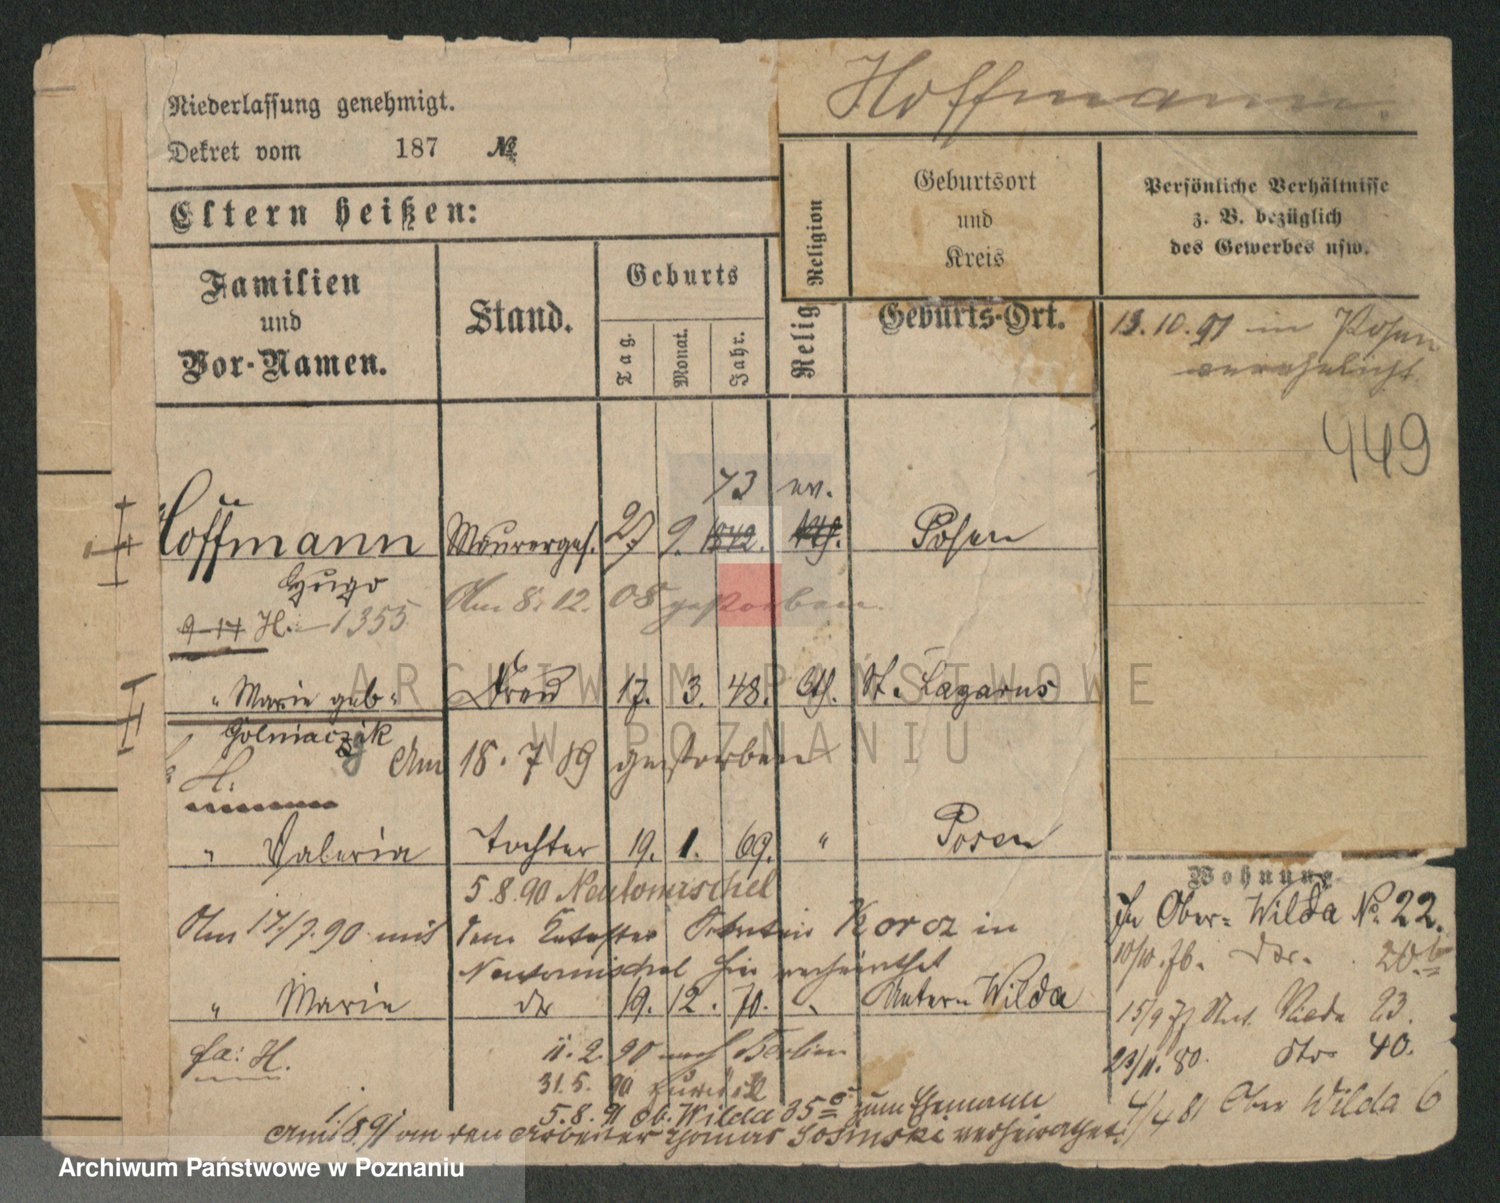 Hoffmann
Niederlassung genehmigt.
Dekret vom 187 №
Eltern heißen:
Familien
und
Vor-Namen.
Stand.
Geburts
Tag.
Monat.
Jahr.
Religion
Relig
Geburtsort
und
Kreis
Geburts-Ort.
Persönliche Verhältnisse
z. B. bezüglich
des Gewerbes usw.
13.10.91 in Posen
verehelicht
449
73 ev.
Hoffmann Maurerges. 27 9. 1842. kth. Posen
Hugo
Am 8.12.08 gestorben.
9-17 H. 1355
" Marie geb. Frau 17. 3. 48. kth. St. Lazarus
Golniaczak
Am 18.7 89 gestorben
H.
" Valeria Tochter 19. 1. 69. " Posen
5.8.90 Neutomischel
Am 17/7.90 mit dem Korcz in
Neutomischel hier verheirathet
" Marie 19. 12. 70. Unter-Wilda
H.
11.2.90 nach Berlin
31.5.90 zurück
5.8.91 Ob. Wilda 35 zum Ehemann
an den Arbeiter Thomas Sosinski verheirathet.
Wohnung
Ober-Wilda № 22.
15/9 23.
23/11.80. 40.
4/4 81 Ober Wilda 6
ARCHIWUM PAŃSTWOWE
W POZNANIU
Archiwum Państwowe w Poznaniu